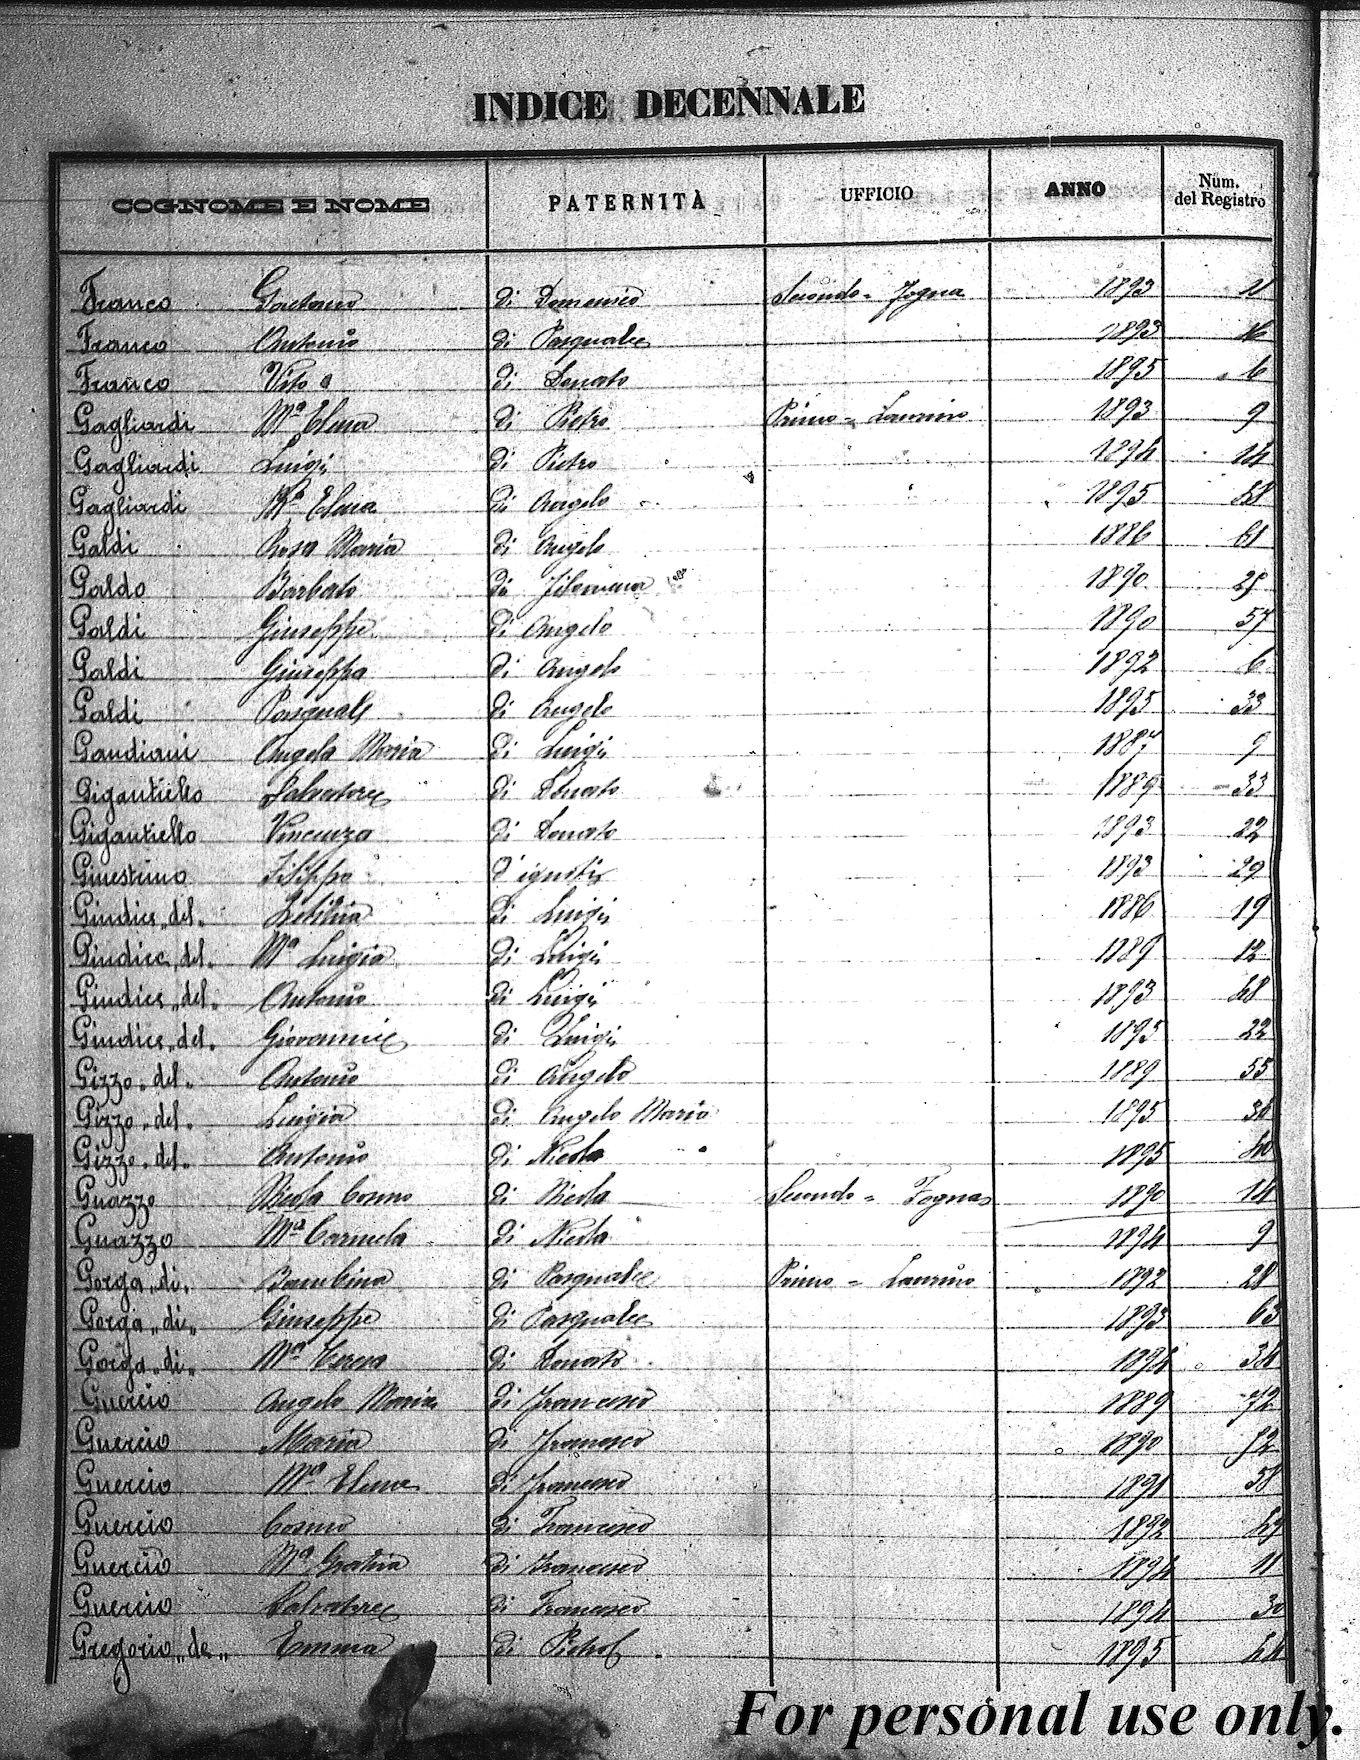 INDICE DECENNALE
COGNOME E NOME PATERNITÀ UFFICIO ANNO Num. del Registro
Franco Gaetano di Domenico Secondo = Fogna 1893 11
Franco Antonio di Pasquale 1893 16
Franco Vito di Donato 1895 6
Gagliardi Mª Elena di Pietro Primo = Laurino 1893 9
Gagliardi Luigi di Pietro 1894 14
Gagliardi Mª Elena di Angelo 1895 58
Galdi Rosa Maria di Angelo 1886 61
Galdo Barbato di Filomena 1890 25
Galdi Giuseppe di Angelo 1890 57
Galdi Giuseppa di Angelo 1892 6
Galdi Pasquale di Angelo 1895 33
Gaudiani Angela Maria di Luigi 1887 9
Gigantiello Salvatore di Donato 1889 33
Gigantiello Vincenza di Donato 1893 22
Ginestrino Filippo d'ignoti 1893 29
Giudice „del„ Letizia di Luigi 1886 19
Giudice „del„ Mª Luigia di Luigi 1889 12
Giudice „del„ Antonio di Luigi 1893 68
Giudice „del„ Giovanni di Luigi 1895 22
Gizzo „del„ Antonio di Angelo 1889 55
Gizzo „del„ Luigia di Angelo Maria 1895
Gizzo „del„ Antonio di Nicola 1895 40
Guazzo Nicola Cosmo di Nicola Secondo = Fogna 1890 14
Guazzo Mª Carmela di Nicola 1894 9
Gorga „di„ Bambina di Pasquale Primo = Laurino 1892 28
Gorga „di„ Giuseppe di Pasquale 1893 63
Gorga „di„ Mª Teresa di Donato 1894 34
Guercio Angelo Maria di Francesco 1889 72
Guercio Maria di Francesco 1890
Guercio Mª Elena di Francesco 1891 58
Guercio Cosmo di Francesco 1892
Guercio Mª Grazia di Francesco 1894 11
Guercio Salvatore di Francesco 1894 30
Gregorio „de„ Emma di Pietro 1895 44
For personal use only.